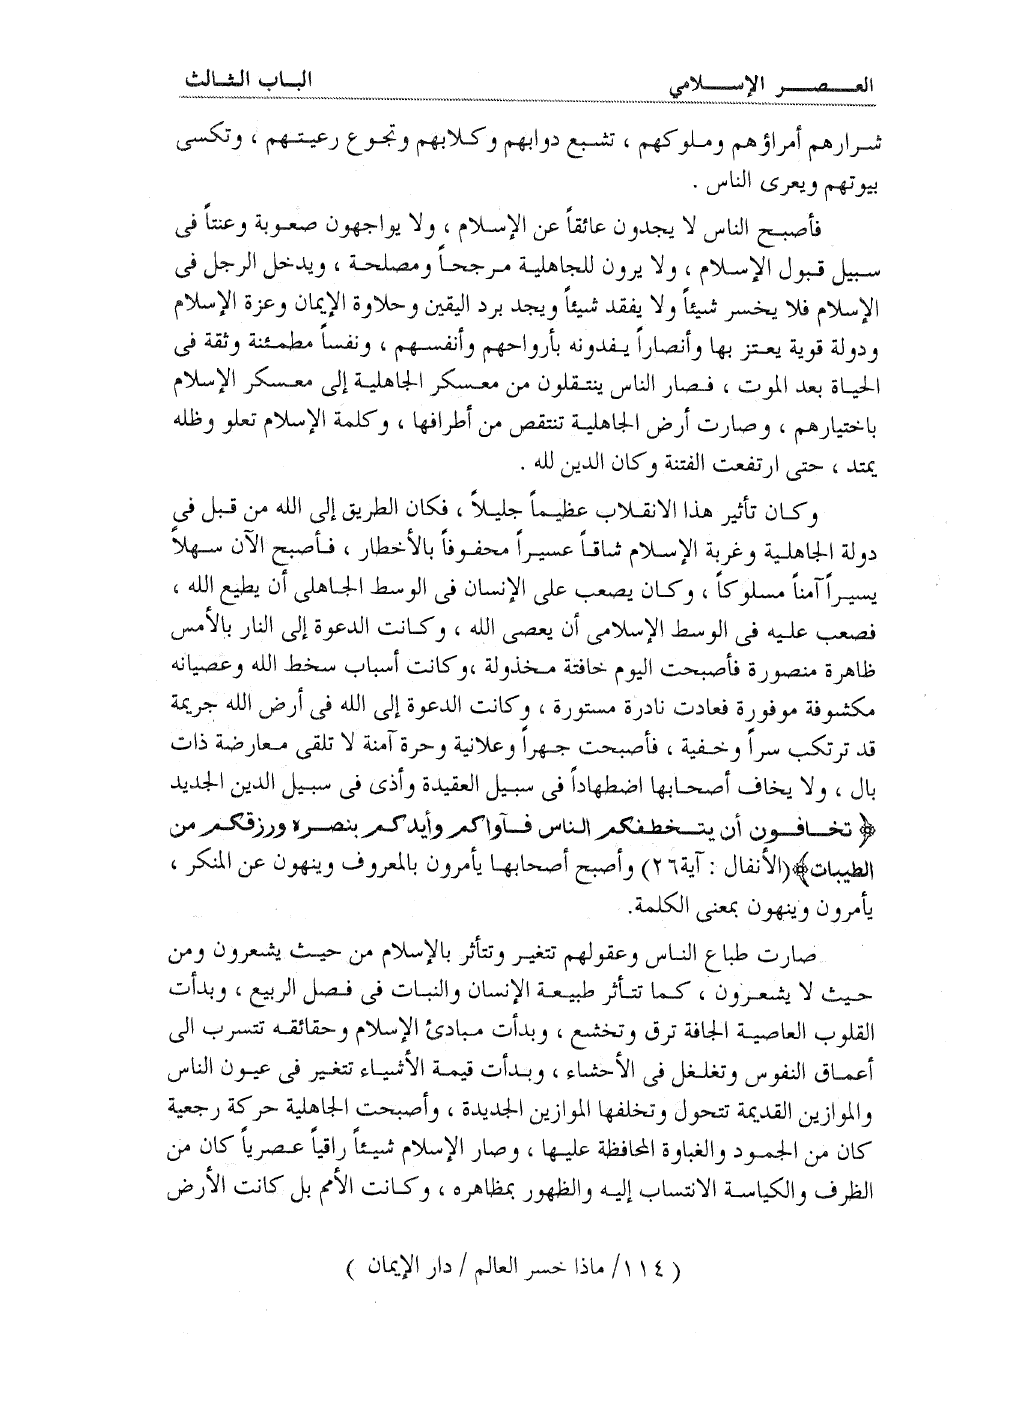 العصر الإسلامي الباب الثالث
شرارهم أمراؤهم وملوكهم ، تشبع دوابهم وكلابهم وتجوع رعيتهم ، وتكسى
بيوتهم ويعرى الناس .
فأصبح الناس لا يجدون عائقاً عن الإسلام ، ولا يواجهون صعوبة وعنتاً فى
سبيل قبول الإسلام ، ولا يرون للجاهلية مرجحاً ومصلحة ، ويدخل الرجل فى
الإسلام فلا يخسر شيئاً ولا يفقد شيئاً ويجد برد اليقين وحلاوة الإيمان وعزة الإسلام
ودولة قوية يعتز بها وأنصاراً يفدونه بأرواحهم وأنفسهم ، ونفساً مطمئنة وثقة فى
الحياة بعد الموت ، فصار الناس ينتقلون من معسكر الجاهلية إلى معسكر الإسلام
باختيارهم ، وصارت أرض الجاهلية تنتقص من أطرافها ، وكلمة الإسلام تعلو وظله
يمتد ، حتى ارتفعت الفتنة وكان الدين لله .
وكان تأثير هذا الانقلاب عظيماً جليلاً ، فكان الطريق إلى الله من قبل في
دولة الجاهلية وغربة الإسلام شاقاً عسيراً محفوفاً بالأخطار ، فأصبح الآن سهلاً
يسيراً آمناً مسلوكاً ، وكان يصعب على الإنسان فى الوسط الجاهلى أن يطيع الله ،
فصعب عليه فى الوسط الإسلامى أن يعصى الله ، وكانت الدعوة إلى النار بالأمس
ظاهرة منصورة فأصبحت اليوم خافتة مخذولة ،وكانت أسباب سخط الله وعصيانه
مكشوفة موفورة فعادت نادرة مستورة ، وكانت الدعوة إلى الله فى أرض الله جريمة
قد ترتكب سراً وخفية ، فأصبحت جهراً وعلانية وحرة آمنة لا تلقى معارضة ذات
بال ، ولا يخاف أصحابها اضطهاداً فى سبيل العقيدة وأذى فى سبيل الدين الجديد
﴿ تخافون أن يتخطفكم الناس فآواكم وأيدكم بنصره ورزقكم من
الطيبات﴾(الأنفال : آية٢٦) وأصبح أصحابها يأمرون بالمعروف وينهون عن المنكر ،
يأمرون وينهون بمعنى الكلمة.
صارت طباع الناس وعقولهم تتغير وتتأثر بالإسلام من حيث يشعرون ومن
حيث لا يشعرون ، كما تتأثر طبيعة الإنسان والنبات فى فصل الربيع ، وبدأت
القلوب العاصية الجافة ترق وتخشع ، وبدأت مبادئ الإسلام وحقائقه تتسرب الى
أعماق النفوس وتغلغل فى الأحشاء ، وبدأت قيمة الأشياء تتغير فى عيون الناس
والموازين القديمة تتحول وتخلفها الموازين الجديدة ، وأصبحت الجاهلية حركة رجعية
كان من الجمود والغباوة المحافظة عليها ، وصار الإسلام شيئاً راقياً عصرياً كان من
الظرف والكياسة الانتساب إليه والظهور بمظاهره ، وكانت الأمم بل كانت الأرض
( ١١٤/ ماذا خسر العالم / دار الإيمان )